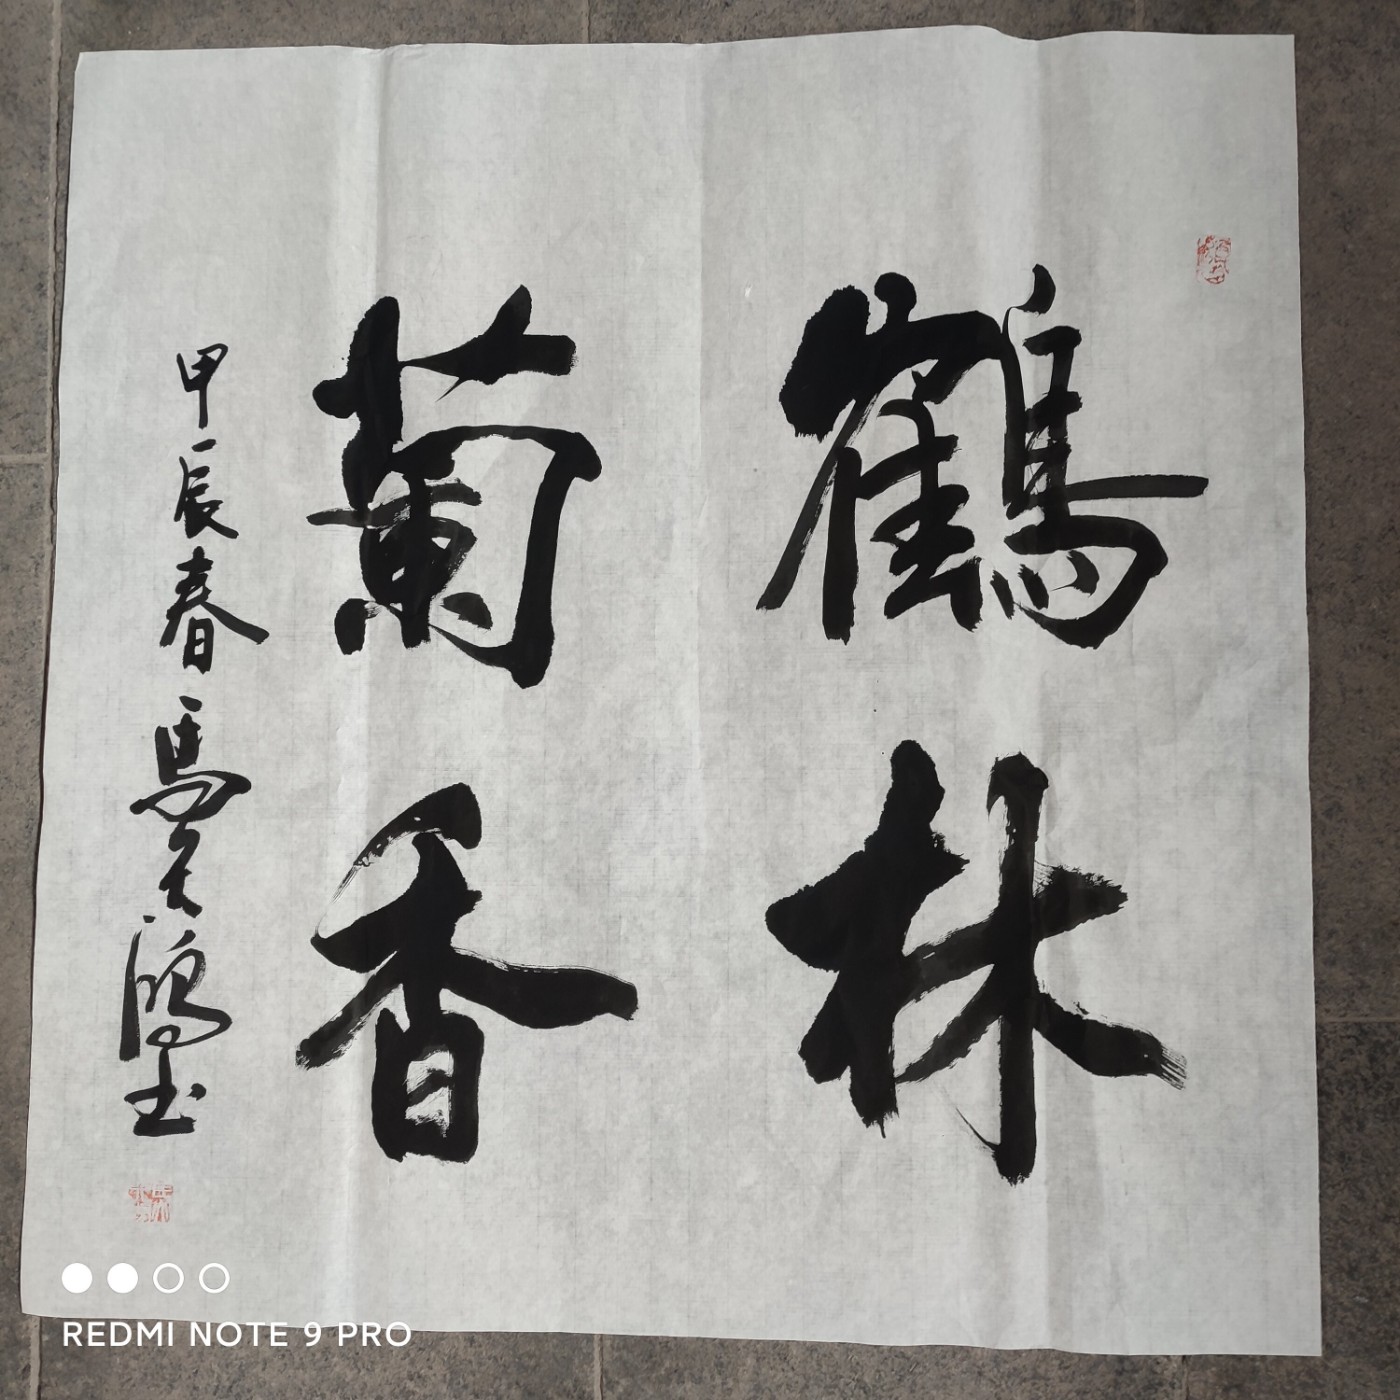 鶴林
菊香
甲辰春馬天鴻书
REDMI NOTE 9 PRO